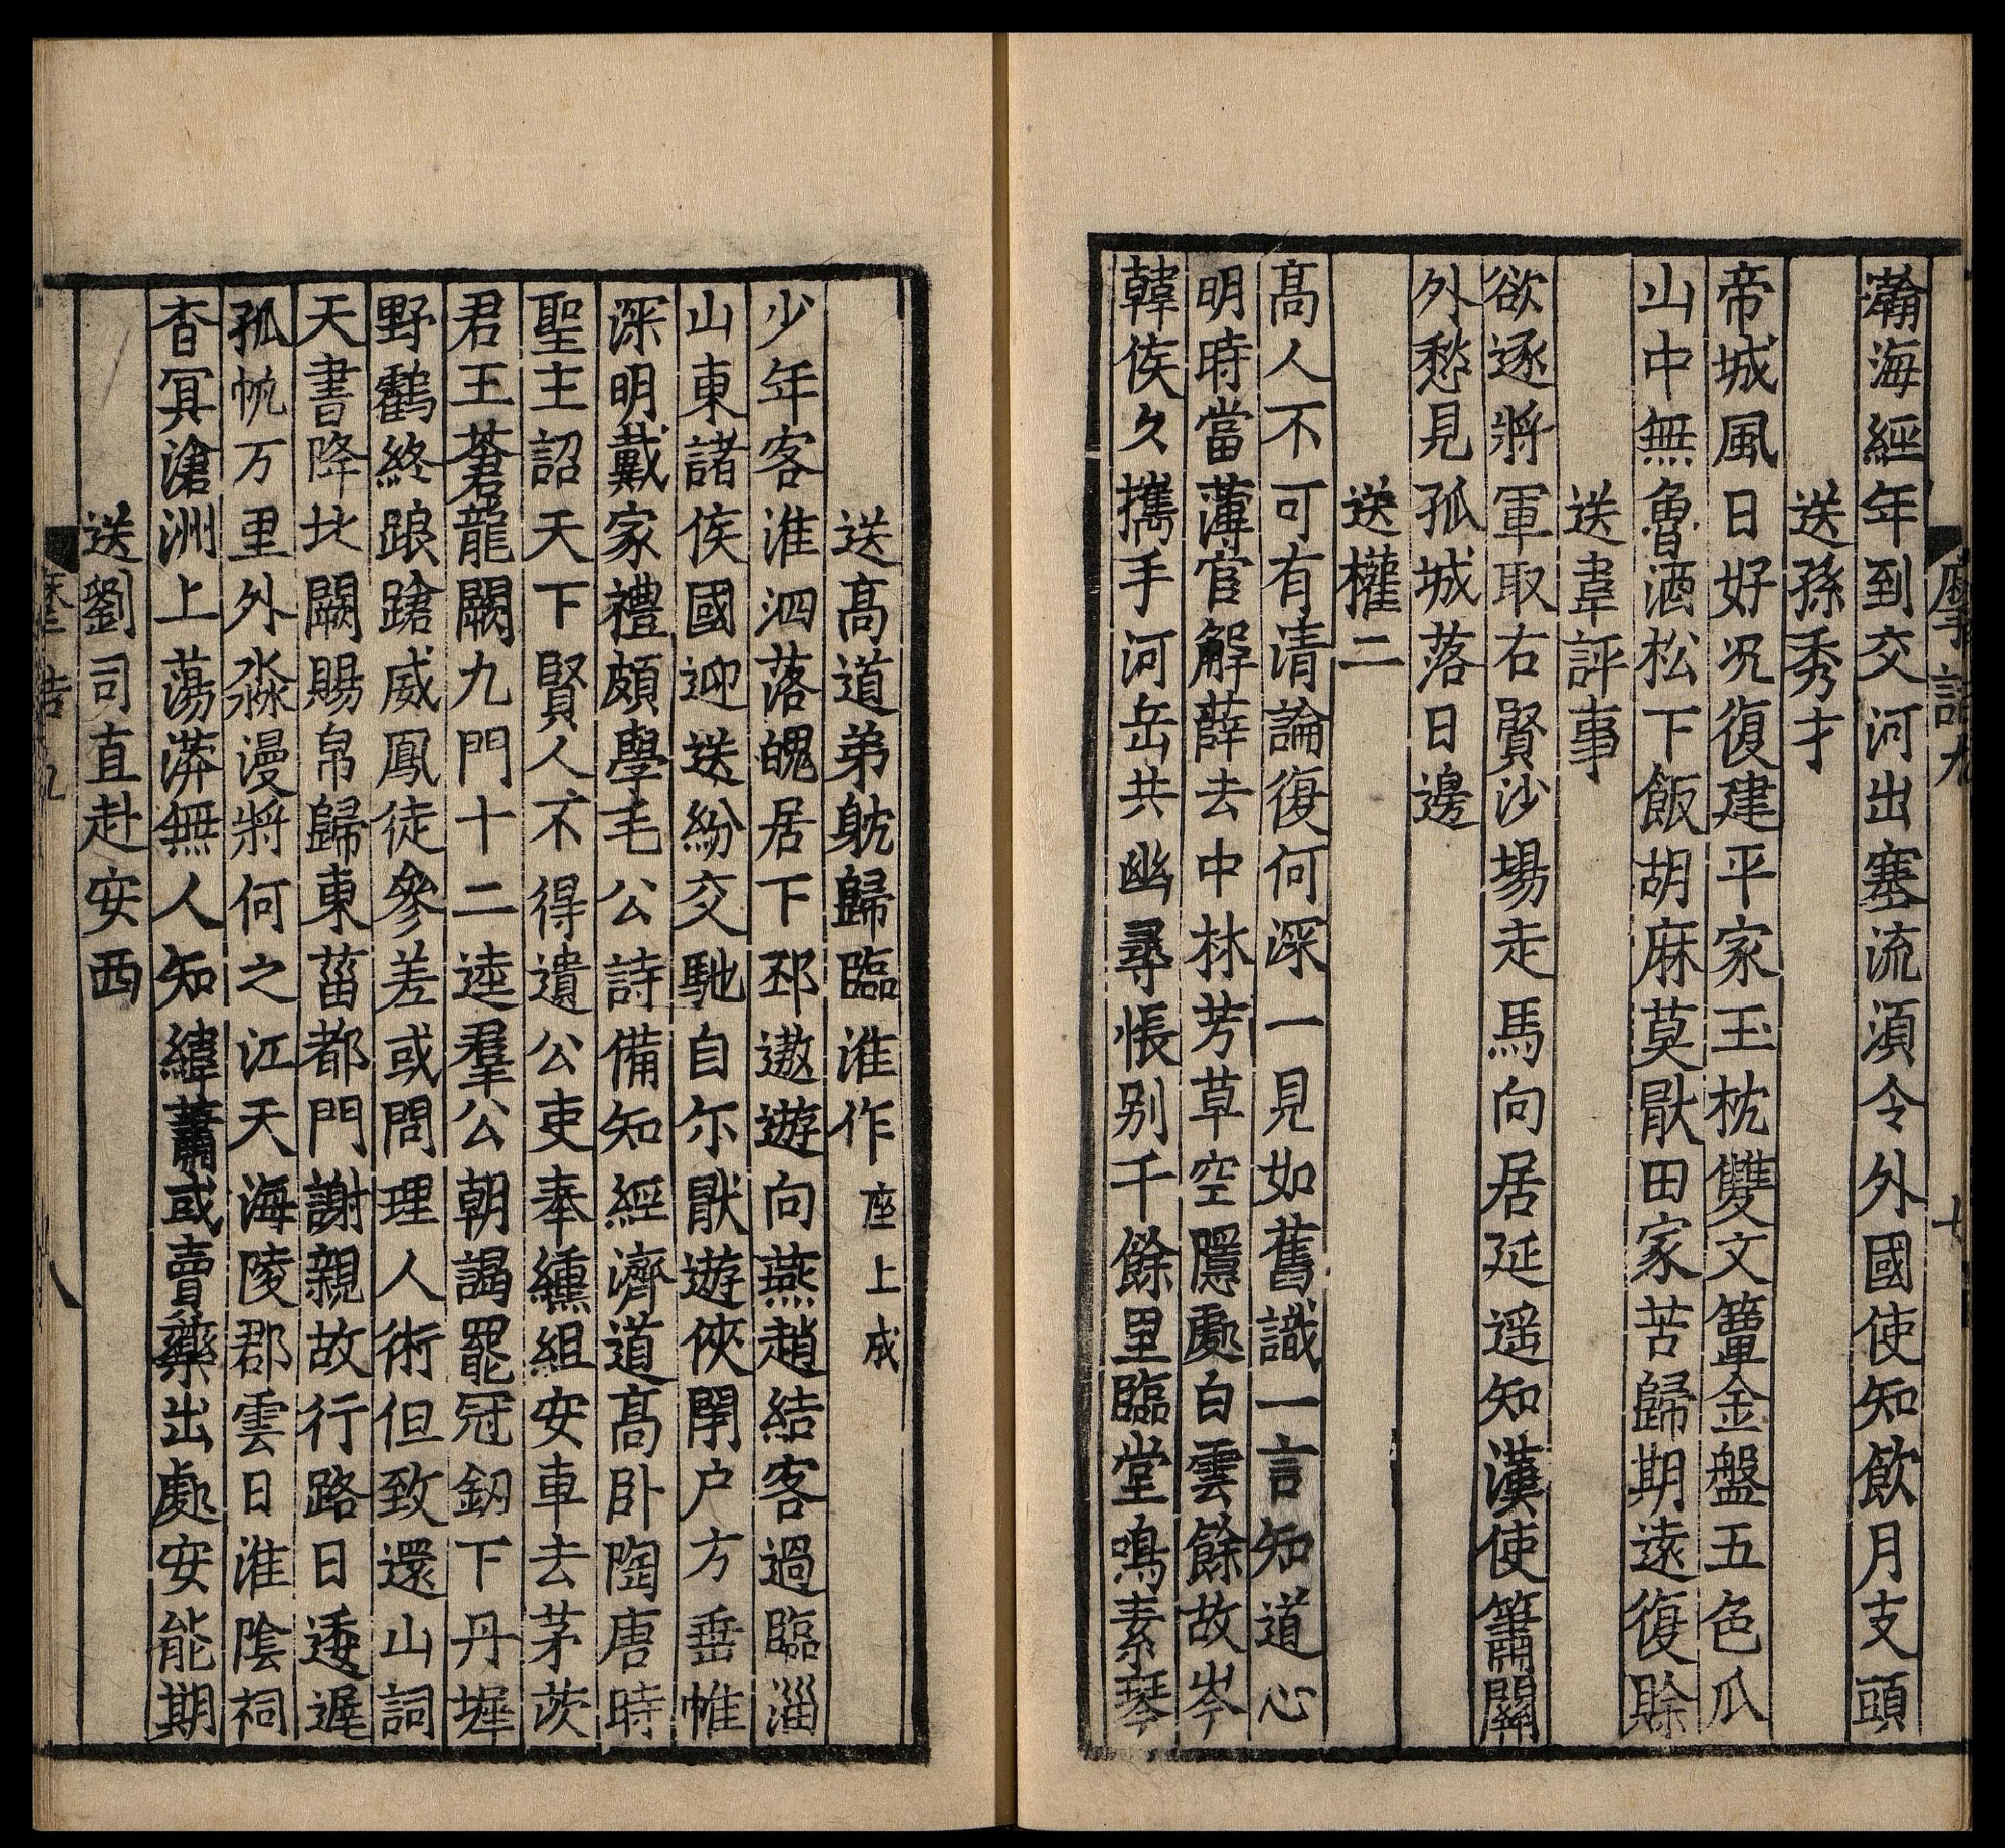 瀚海經年到交河出塞流須令外國使知飲月支頭
送孫秀才
帝城風日好况復建平家玉枕雙文簟金盤五色瓜
山中無魯酒松下飯胡麻莫猒田家苦歸期遠復賖
送韋評事
欲逐將軍取右賢沙場走馬向居延遥知漢使簫關
外愁見孤城落日邊
送權二
髙人不可有清論復何深一見如舊識一言知道心
明時當薄官解薛去中林芳草空隱處白雲餘故岑
韓侯久攜手河岳共幽尋悵别千餘里臨堂鳴素琴
送髙道弟躭歸臨淮作 座上成
少年客淮泗落魄居下邳遨遊向燕趙結客過臨淄
山東諸侯國迎送紛交馳自尓猒遊俠閉户方垂帷
深明戴家禮頗學毛公詩備知經濟道髙卧陶唐時
聖主詔天下賢人不得遺公吏奉纁組安車去茅茨
君王蒼龍闕九門十二逵羣公朝謁罷冠釼下丹墀
野鸖終踉蹌威鳳徒參差或問理人術但致還山詞
天書降北闕賜帛歸東菑都門謝親故行路日逶遲
孤帆万里外淼漫將何之江天海陵郡雲日淮隂祠
杳冥滄洲上蕩漭無人知緯蕭或賣藥出處安能期
送劉司直赴安西
八